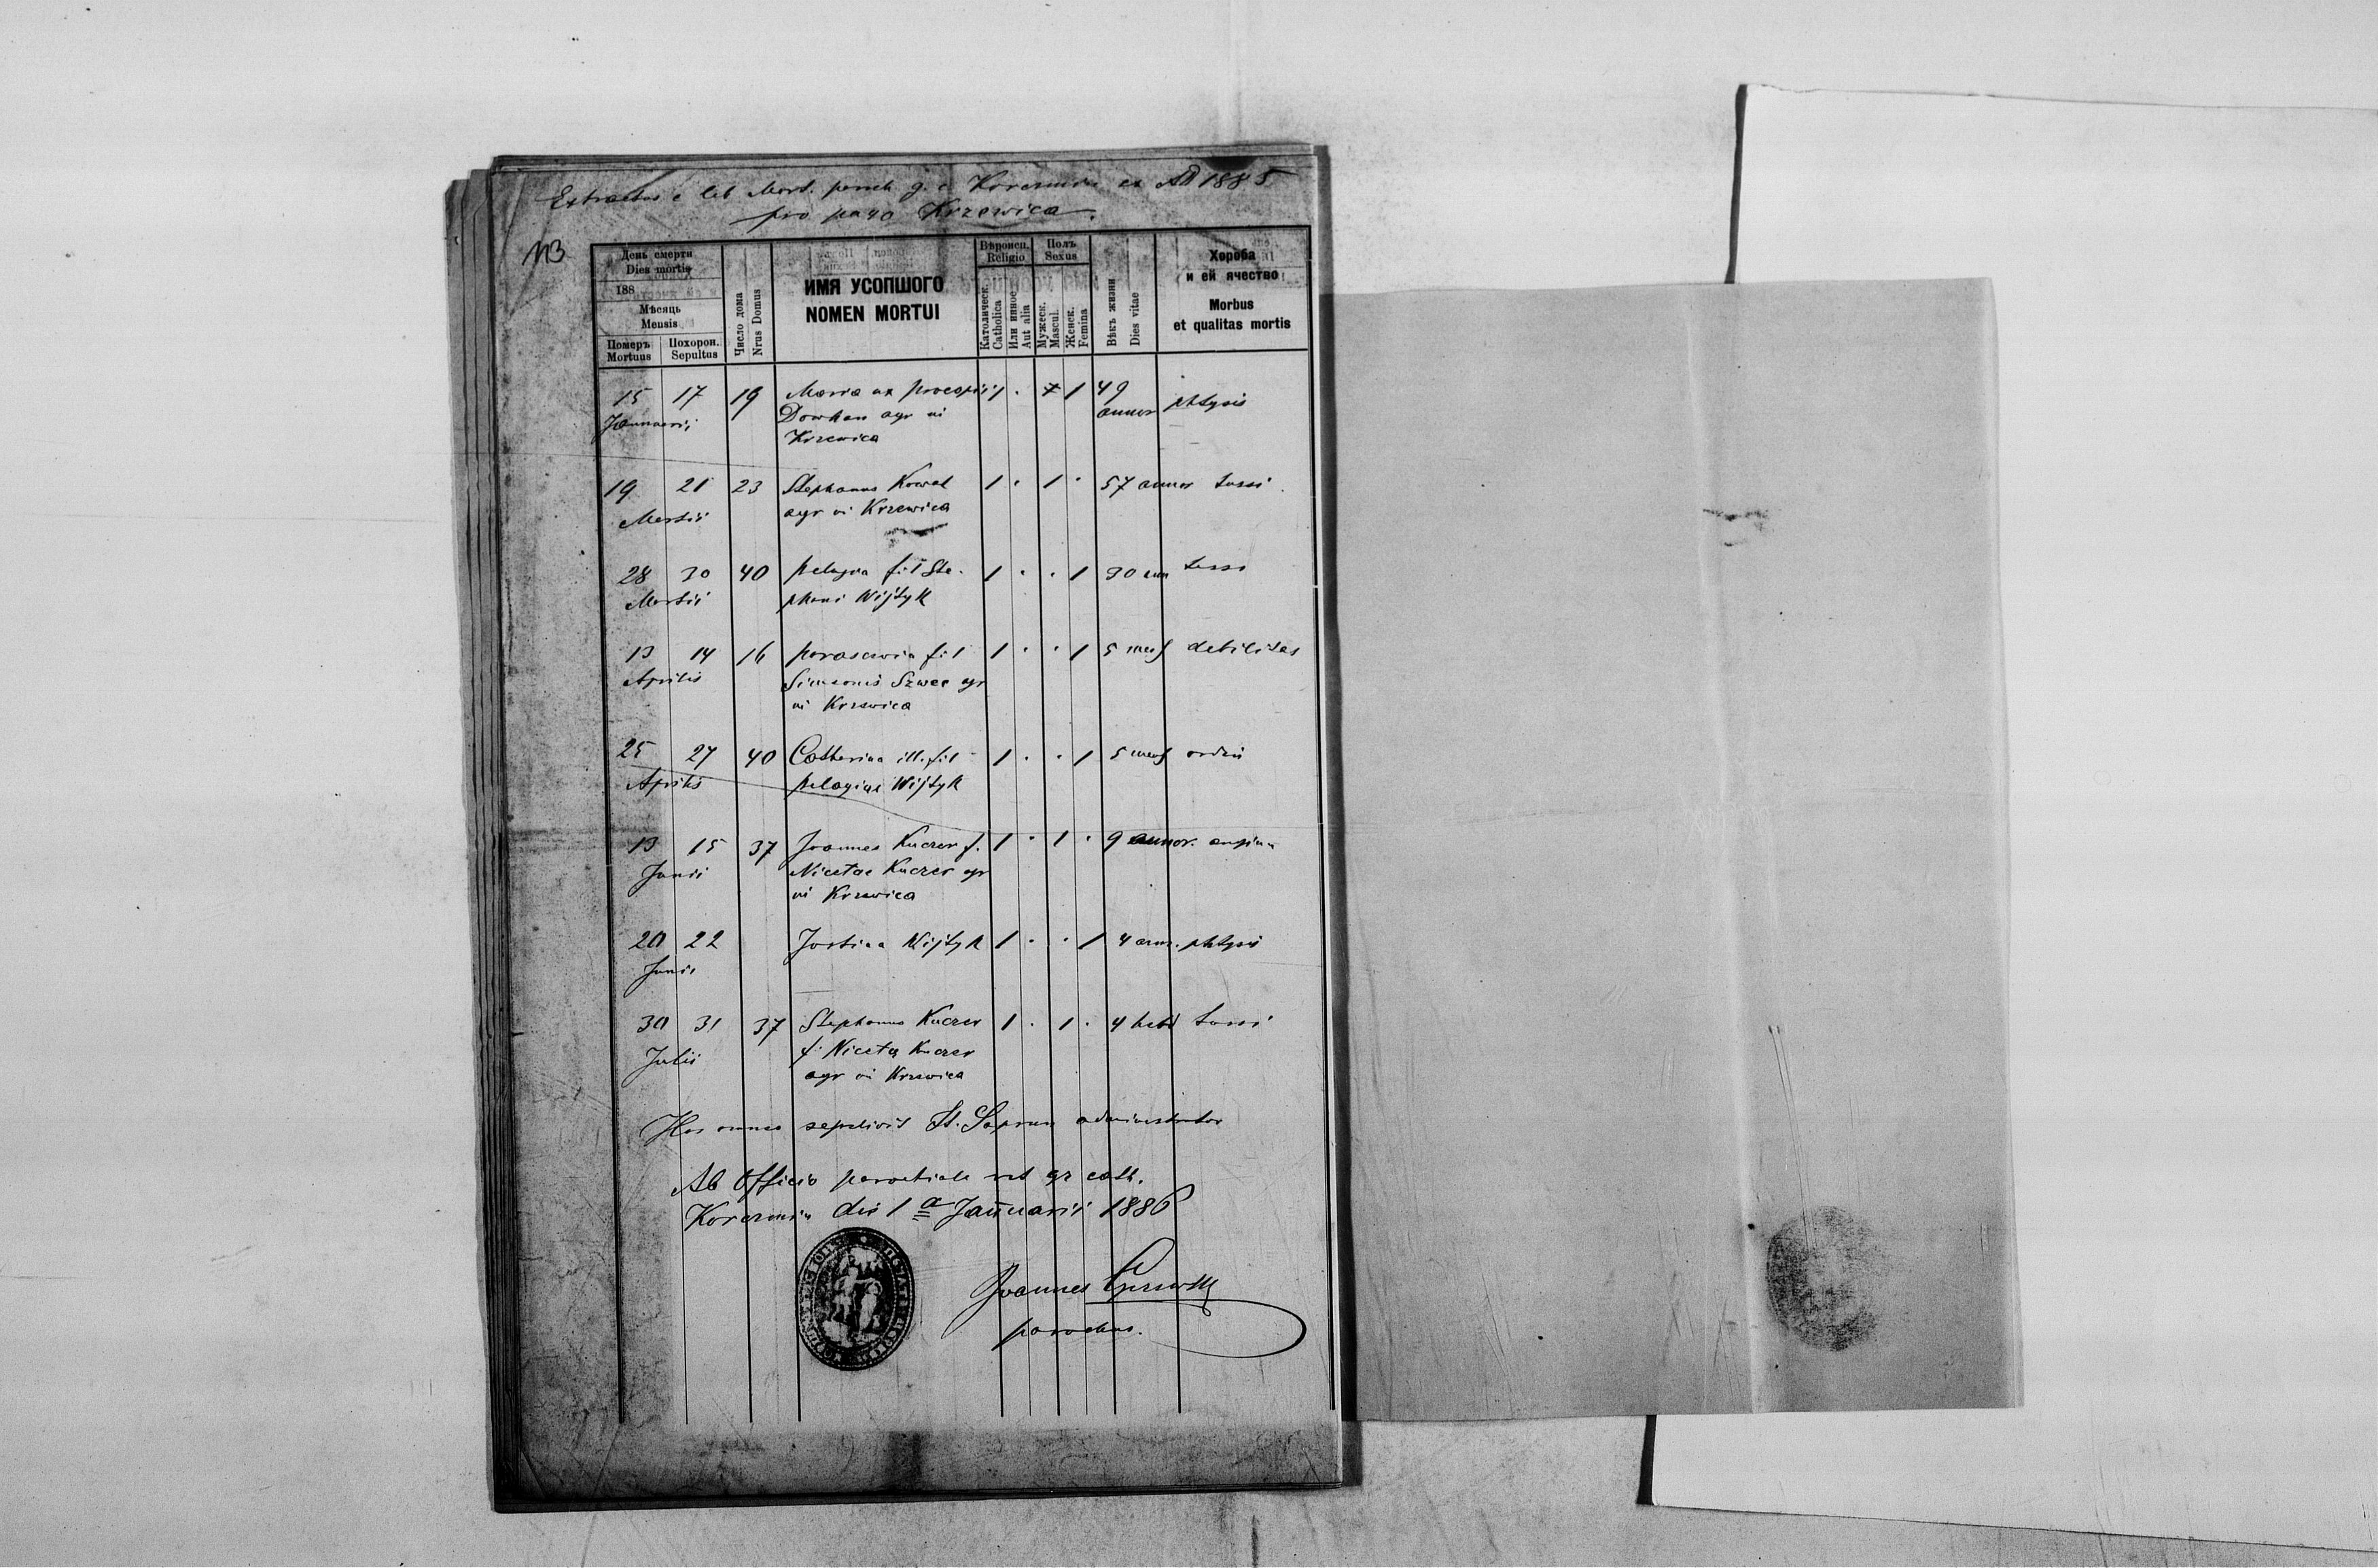 Extractus e lib Mort. paroch g. c Korczmin ex AD 1885
pro pago Krzewica
113
День смерти
Dies mortis
188
Мѣсяць
Mensis
Померъ Mortuus
Похорон. Sepultus
Число дома
Nrus Domus
ИМЯ УСОПШОГО
NOMEN MORTUI
Вѣроисп.
Religio
Католическ.
Catholica
Или инное
Aut alia
Полъ
Sexus
Мужеск.
Mascul.
Женск.
Femina
Вѣкъ жизни
Dies vitae
Хороба
и ей ячество
Morbus
et qualitas mortis
15 17 19 Maria ux Procopii 1 . 1 49
Dowhan agr in annor phtysis
Januarii
Krzewica
19 21 23 Stephanus Kowal 1 . 1 . 57 annor tussi
Martii agr in Krzewica
28 30 40 Pelagia fil Ste-
1 . . 1 30 ann tussi
Martii phani Wijtyk
13 14 16 Parascewia fil 1 . . 1 5 mens debilitas
Aprilis Simeonis Szwec agr
in Krzewica
25 27 40 Catherina ill. fil 1 . . 1 5 mens
Aprilis Pelagiae Wijtyk
13 15 37 Joannes Kuczer f. 1 . 1 . 9 annor. angina
Junii Nicetae Kuczer agr
in Krzewica
20 22 Justina Wijtyk 1 . . 1 4 ann. phtysis
Junii
30 31 37 Stephanus Kuczer 1 . 1 . 4 hebd tussi
Julii f. Niceta Kuczer
agr in Krzewica
Hos omnes sepelivit St. Saprun administrator
Ab Officio parochiali rit gr cath.
Korczmin die 1a Januarii 1886
Joannes
parochus.